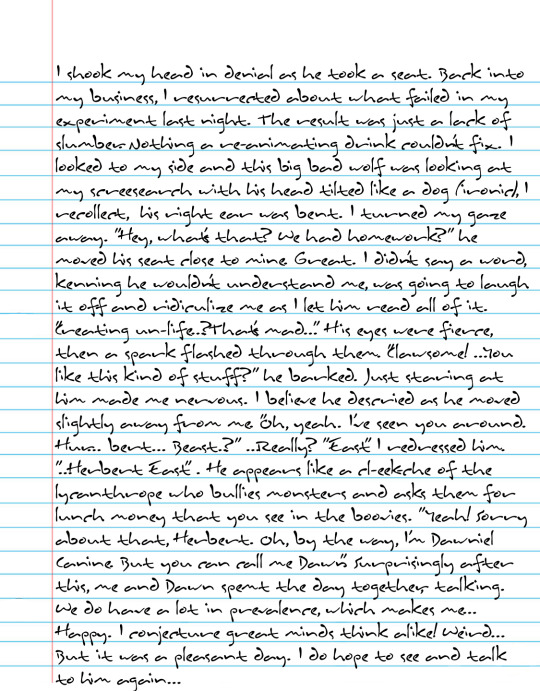 I shook my head in denial as he took a seat. Back into
my business, I resurrected about what failed in my
experiment last night. The result was just a lack of
slumber. Nothing a re-animating drink couldn't fix. I
looked to my side and this big bad wolf was looking at
my screesearch with his head tilted like a dog (ironic), I
recollect, his right ear was bent. I turned my gaze
away. "Hey, what's that? We had homework?" he
moved his seat close to mine Great. I didn't say a word,
kenning he wouldn't understand me, was going to laugh
it off and ridiculize me as I let him read all of it.
"Creating un-life..? That's mad..." His eyes were fierce,
then a spark flashed through them. "Clawsome! ...You
like this kind of stuff?" he barked. Just staring at
him made me nervous. I believe he descried as he moved
slightly away from me "Oh, yeah. I've seen you around.
Hum... bert... Beast..?" "..Really? "East" I redressed him.
"..Herbert East". He appears like a cl-eek-che of the
lycanthrope who bullies monsters and asks them for
lunch money that you see in the boovies. "Yeah! Sorry
about that, Herbert. Oh, by the way, I'm Dawniel
Canine. But you can call me Dawn". Surprisingly after
this, me and Dawn spent the day together, talking.
We do have a lot in prevalence, which makes me...
Happy. I conjecture great minds think alike! Weird...
But it was a pleasant day. I do hope to see and talk
to him again...